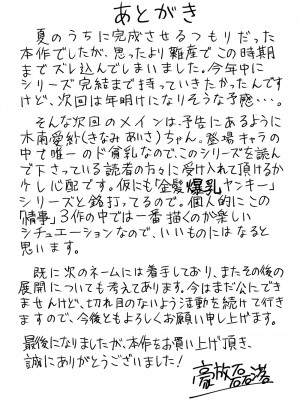 あとがき
夏のうちに完成させるつもりだった
本作でしたが、思ったより難産でこの時期
までズレ込んでしまいました。今年中に
シリーズ完結まで持っていきたかったんです
けど、次回は年明けになりそうな予感・・・。
そんな次回のメインは、予告にあるように
木南愛紗(きなみ あいさ)ちゃん。登場キャラの
中で唯一のド貧乳なので、このシリーズを読ん
で下さっている読者の方々に受け入れて頂けるか
少し心配です。仮にも「金髪爆乳ヤンキー」
シリーズと銘打ってるので。個人的にこの
「情事」3作の中では一番描くのが楽しい
シチュエーションなので、いいものにはなると
思います。
既に次のネームには着手しており、またその後の
展開についても考えてあります。今はまだ公にでき
ませんけど、切れ目のないよう活動を続けて行き
ますので、今後ともよろしくお願い申し上げます。
最後になりましたが、本作をお買い上げ頂き、
誠にありがとうございました!